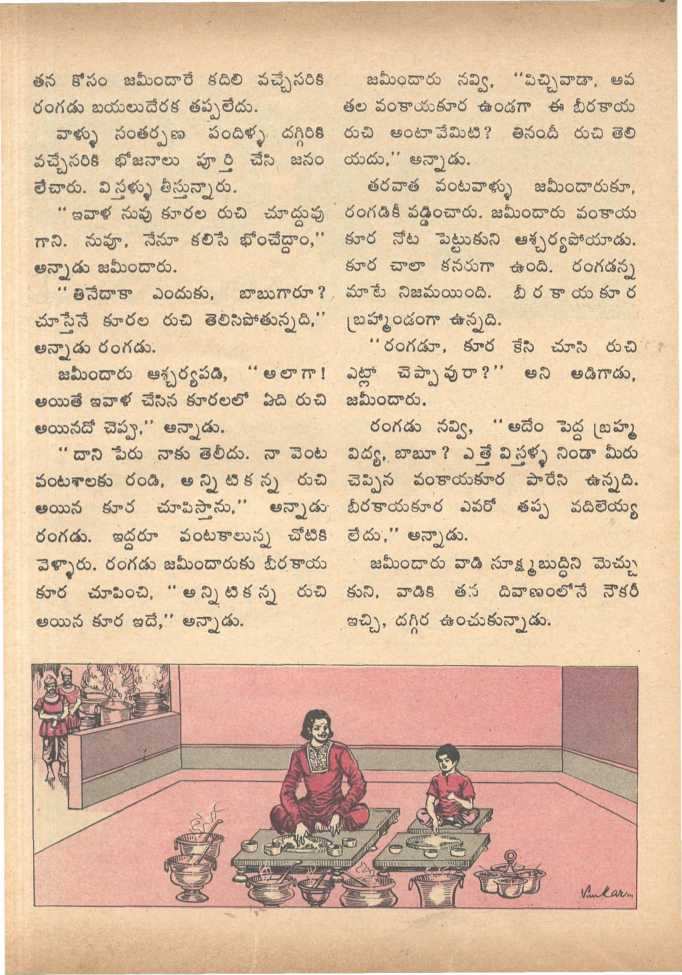 తన కోసం జమీందారే కదిలి వచ్చేసరికి
రంగడు బయలుదేరక తప్పలేదు.
వాళ్ళు సంతర్పణ పందిళ్ళ దగ్గిరికి
వచ్చేసరికి భోజనాలు పూర్తి చేసి జనం
లేచారు. విస్తళ్ళు తీస్తున్నారు.
“ఇవాళ నువు కూరల రుచి చూద్దువు
గాని. నువూ, నేనూ కలిసే భోంచేద్దాం,”
అన్నాడు జమీందారు.
“తినేదాకా ఎందుకు, బాబుగారూ?
చూస్తేనే కూరల రుచి తెలిసిపోతున్నది,”
అన్నాడు రంగడు.
జమీందారు ఆశ్చర్యపడి, “అలాగా!
అయితే ఇవాళ చేసిన కూరలలో ఏది రుచి
అయినదో చెప్పు,” అన్నాడు.
“దాని పేరు నాకు తెలీదు. నా వెంట
వంటశాలకు రండి, అన్నిటికన్న రుచి
అయిన కూర చూపిస్తాను,” అన్నాడు
రంగడు. ఇద్దరూ వంటకాలున్న చోటికి
వెళ్ళారు. రంగడు జమీందారుకు బీరకాయ
కూర చూపించి, “అన్నిటికన్న రుచి
అయిన కూర ఇదే,” అన్నాడు.
జమీందారు నవ్వి, “పిచ్చివాడా, అవ
తల వంకాయకూర ఉండగా ఈ బీరకాయ
రుచి అంటావేమిటి? తినందీ రుచి తెలి
యదు,” అన్నాడు.
తరవాత వంటవాళ్ళు జమీందారుకూ,
రంగడికీ వడ్డించారు. జమీందారు వంకాయ
కూర నోట పెట్టుకుని ఆశ్చర్యపోయాడు.
కూర చాలా కనరుగా ఉంది. రంగడన్న
మాటే నిజమయింది. బీరకాయకూర
బ్రహ్మాండంగా ఉన్నది.
“రంగడూ, కూర కేసి చూసి రుచి
ఎట్లా చెప్పావురా?” అని అడిగాడు,
జమీందారు.
రంగడు నవ్వి, “అదేం పెద్ద బ్రహ్మ
విద్య, బాబూ? ఎత్తే విస్తళ్ళ నిండా మీరు
చెప్పిన వంకాయకూర పారేసి ఉన్నది.
బీరకాయకూర ఎవరో తప్ప వదిలెయ్య
లేదు,” అన్నాడు.
జమీందారు వాడి సూక్ష్మబుద్ధిని మెచ్చు
కుని, వాడికి తన దివాణంలోనే నౌకరీ
ఇచ్చి, దగ్గిర ఉంచుకున్నాడు.